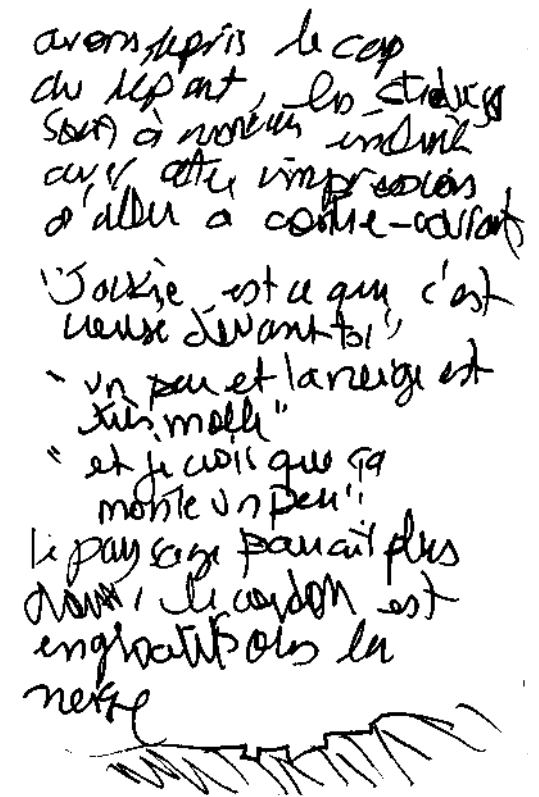 avons repris le cap
du départ, les
sont à nouveau
avec cette impression
d'aller à contre-courant
"Jackie est ce que c'est
creusé devant toi"
" un peu et la neige est
très molle"
" et je crois que ça
monte un peu"
le paysage parait plus
le cordon est
dans la
neige